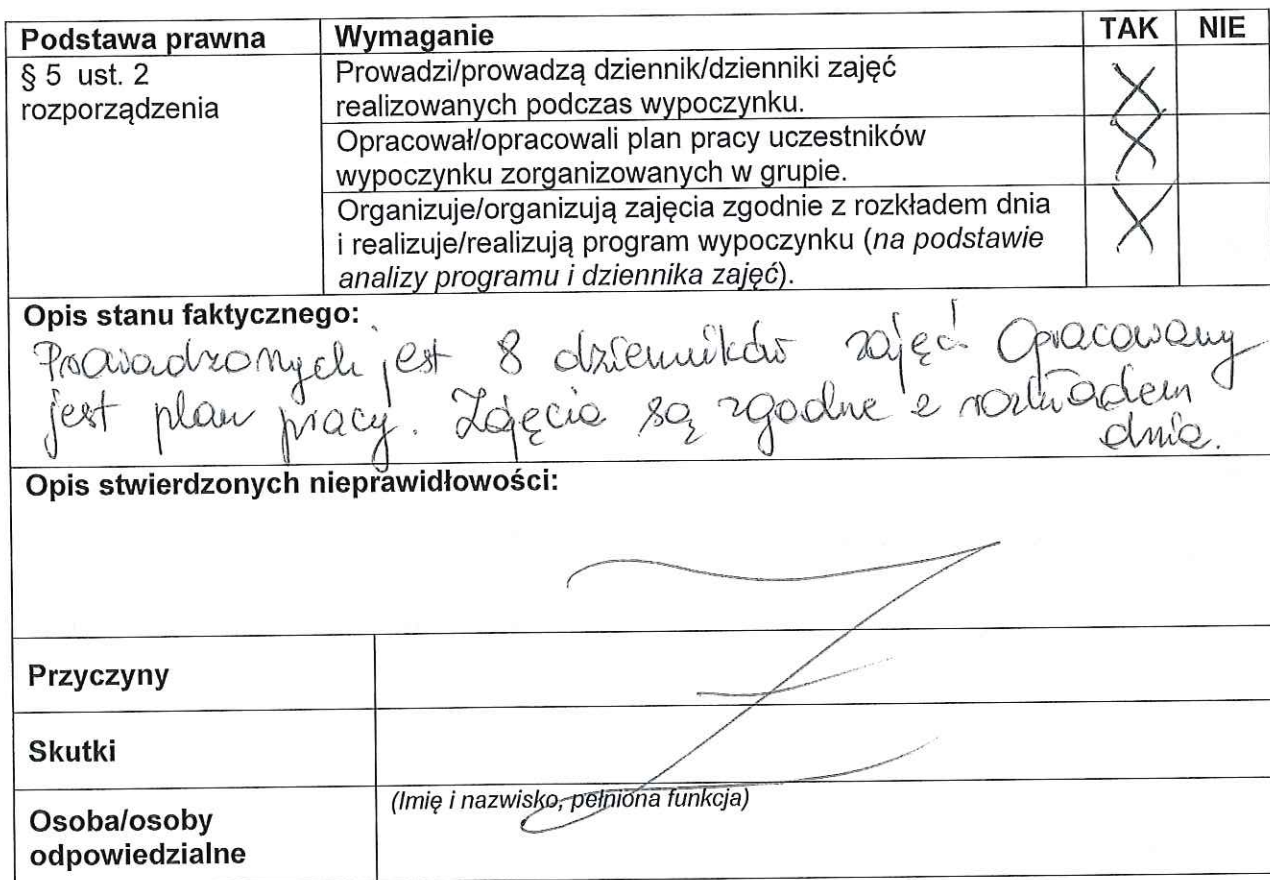 Podstawa prawna Wymaganie TAK NIE
§ 5 ust. 2 rozporządzenia
Prowadzi/prowadzą dziennik/dzienniki zajęć
realizowanych podczas wypoczynku. X
Opracował/opracowali plan pracy uczestników
wypoczynku zorganizowanych w grupie. X
Organizuje/organizują zajęcia zgodnie z rozkładem dnia
i realizuje/realizują program wypoczynku (na podstawie
analizy programu i dziennika zajęć). X
Opis stanu faktycznego:
Prowadzonych jest 8 dzienników zajęć. Opracowany
jest plan pracy. Zajęcia są zgodne z rozkładem
dnia.
Opis stwierdzonych nieprawidłowości:
Przyczyny
Skutki
(Imię i nazwisko, pełniona funkcja)
Osoba/osoby
odpowiedzialne